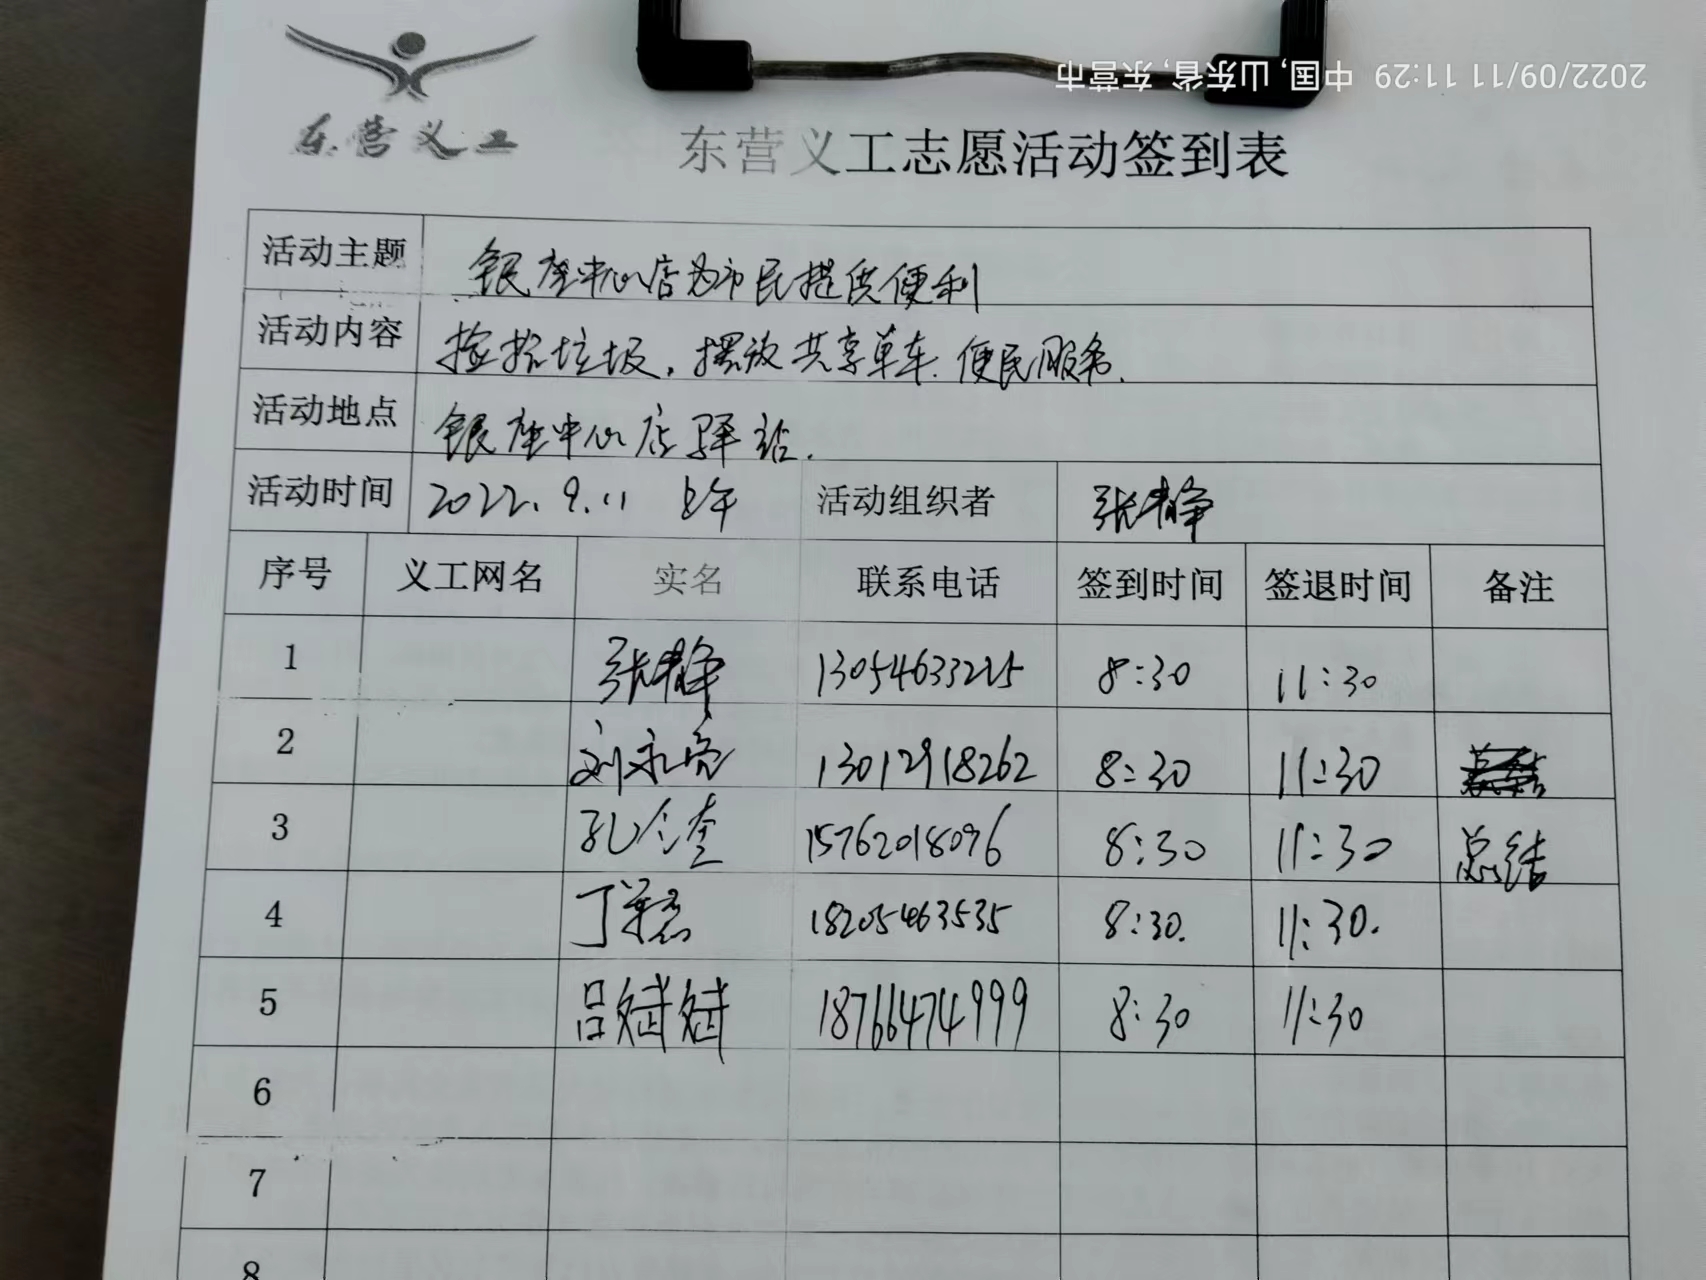 2022/09/11 11:29 中国, 山东省, 东营市
东营义工
东营义工志愿活动签到表
活动主题 银座中心店为市民提供便利
活动内容 捡拾垃圾，摆放共享单车、便民服务.
活动地点 银座中心店驿站.
活动时间 2022.9.11 上午 活动组织者 张静
序号 义工网名 实名 联系电话 签到时间 签退时间 备注
1 张静 13054633215 8:30 11:30
2 刘永亮 13012918262 8:30 11:30
3 孔令奎 15762018096 8:30 11:30 总结
4 丁 18205463535 8:30. 11:30.
5 吕斌斌 18766474999 8:30 11:30
6
7
8